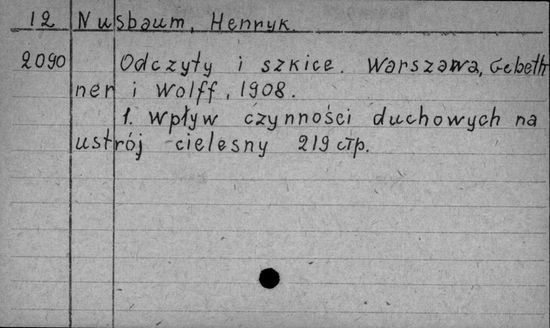 12 Nusbaum, Henryk.
2090 Odczyty i szkice. Warszawa, Gebeth
ner i Wolff, 1908.
1. Wpływ czynności duchowych na
ustrój cielesny 219 стр.